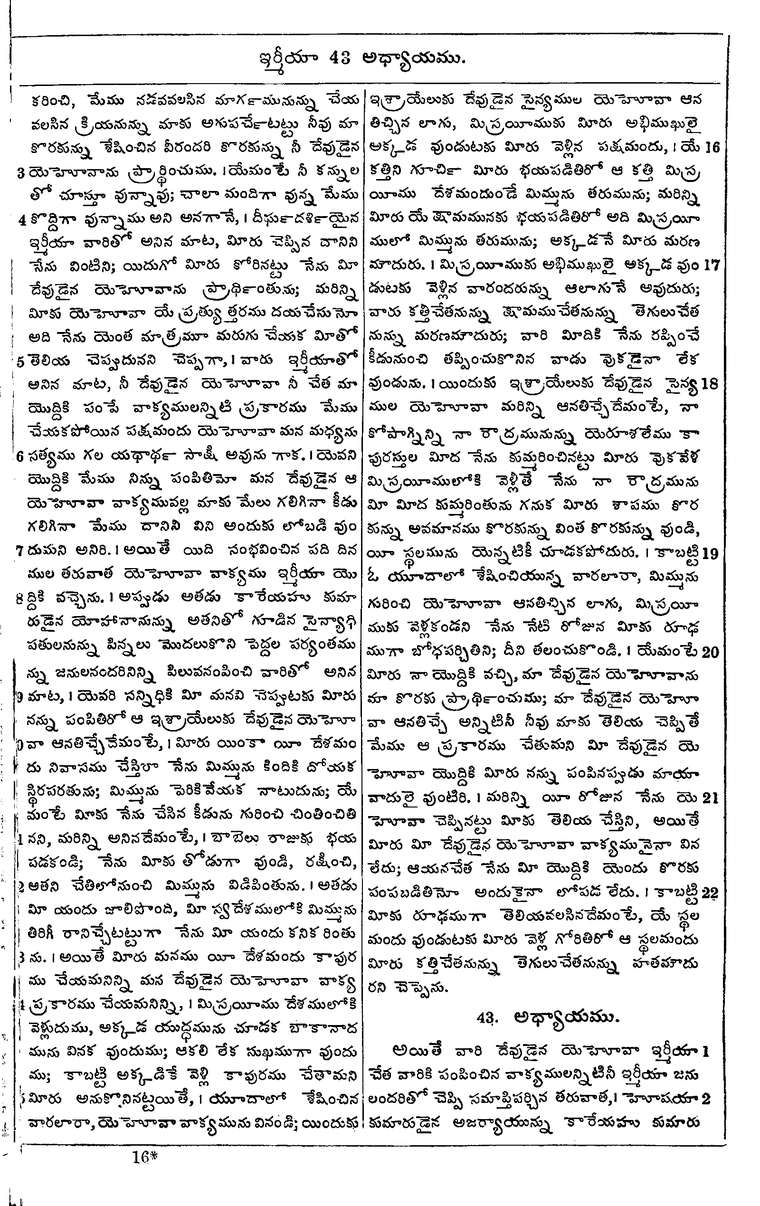 ఇర్మీయా 43 అధ్యాయము.
కరించి, మేము నడవవలసిన మార్గమునున్ను చేయ
వలసిన క్రియనున్ను మాకు అగుపర్చేటట్టు నీవు మా
కొరకున్ను శేషించిన వీరందరి కొరకున్ను నీ దేవుడైన
3 యెహోవాను ప్రార్థించుము. । యేమంటే నీ కన్నుల
తో చూస్తూ వున్నావు; చాలా మందిగా వున్న మేము
4 కొద్దిగా వున్నాము అని అనగానే, । దీర్ఘదర్శియైన
ఇర్మీయా వారితో అనిన మాట, మీరు చెప్పిన దానిని
నేను వింటిని; యిదుగో మీరు కోరినట్టు నేను మీ
దేవుడైన యెహోవాను ప్రార్థింతును; మరిన్ని
మీకు యెహోవా యే ప్రత్యుత్తరము దయచేసునో
అది నేను యెంత మాత్రమూ మరుగు చేయక మీతో
5 తెలియ చెప్పుదునని చెప్పగా, । వారు ఇర్మీయాతో
అనిన మాట, నీ దేవుడైన యెహోవా నీ చేత మా
యొద్దికి పంపే వాక్యములన్నిటి ప్రకారము మేము
చేయకపోయిన పక్షమందు యెహోవా మన మధ్యను
6 సత్యము గల యథార్థ సాక్షి అవును గాక. । యెవని
యొద్దికి మేము నిన్ను పంపితిమో మన దేవుడైన ఆ
యెహోవా వాక్యమువల్ల మాకు మేలు గలిగినా కీడు
గలిగినా మేము దానిని విని అందుకు లోబడి వుం
7 దుమని అనిరి. । అయితే యిది సంభవించిన పది దిన
ముల తరువాత యెహోవా వాక్యము ఇర్మీయా యొ
8 ద్దికి వచ్చెను. । అప్పుడు అతడు కారేయహు కుమా
రుడైన యోహానానున్ను అతనితో గూడిన సైన్యాధి
పతులనున్ను పిన్నలు మొదలుకొని పెద్దల పర్యంతము
న్ను జనులనందరినిన్ని పిలువనంపించి వారితో అనిన
9 మాట, । యెవరి సన్నిధికి మీ మనవి చెప్పుటకు మీరు
నన్ను పంపితిరో ఆ ఇశ్రాయేలుకు దేవుడైన యెహో
0 వా ఆనతిచ్చేదేమంటే, । మీరు యింకా యీ దేశమం
దు నివాసము చేస్తిరా నేను మిమ్మును కిందికి దోయక
స్థిరపరతును; మిమ్మును పెరికివేయక నాటుదును; యే
మంటే మీకు నేను చేసిన కీడును గురించి చింతించితి
1 నని, మరిన్ని అనినదేమంటే, । బాబెలు రాజుకు భయ
పడకండి; నేను మీకు తోడుగా వుండి, రక్షించి,
2 అతని చేతిలోనుంచి మిమ్మును విడిపింతును. । అతడు
మీ యందు జాలిపొంది, మీ స్వదేశములోకి మిమ్మును
తిరిగీ రానిచ్చేటట్టుగా నేను మీ యందు కనిక రింతు
3 ను. । అయితే మీరు మనము యీ దేశమందు కాపుర
ము చేయమనిన్ని మన దేవుడైన యెహోవా వాక్య
4 ప్రకారము చేయమనిన్ని, । మిస్రయీము దేశములోకి
వెళ్లుదుము, అక్కడ యుద్ధమును చూడక బాకానాద
మును వినక వుందుము; ఆకలి లేక సుఖముగా వుందు
ము; కాబట్టి అక్కడికే వెళ్లి కాపురము చేతామని
5 మీరు అనుకొనినట్టయితే, । యూదాలో శేషించిన
వారలారా, యెహోవా వాక్యమును వినండి; యిందుకు
ఇశ్రాయేలుకు దేవుడైన సైన్యముల యెహోవా ఆన
తిచ్చిన లాగు, మిస్రయీముకు మీరు అభిముఖులై
అక్కడ వుండుటకు మీరు వెళ్లిన పక్షమందు, । యే 16
కత్తిని గూర్చి మీరు భయపడితిరో ఆ కత్తి మిస్ర
యీము దేశమందుండే మిమ్మును తరుమును; మరిన్ని
మీరు యే షామమునకు భయపడితిరో అది మిస్రయీ
ములో మిమ్మును తరుమును; అక్కడనే మీరు మరణ
మాదురు. । మిస్రయీముకు అభిముఖులై అక్కడ వుం 17
డుటకు వెళ్లిన వారందరున్ను ఆలాగునే అవుదురు;
వారు కత్తిచేతనున్ను షామముచేతనున్ను తెగులుచేత
నున్ను మరణమాదురు; వారి మీదికి నేను రప్పించే
కీడునుంచి తప్పించుకొనిన వాడు వొకడైనా లేక
వుండును. । యిందుకు ఇశ్రాయేలుకు దేవుడైన సైన్య 18
ముల యెహోవా మరిన్ని ఆనతిచ్చేదేమంటే, నా
కోపాగ్నిన్ని నా రౌద్రమునున్ను యెరూశలేము కా
పురస్తుల మీద నేను కుమ్మరించినట్టు మీరు వొకవేళ
మిస్రయీములోకి వెళ్లితే నేను నా రౌద్రమును
మీ మీద కుమ్మరింతును గనుక మీరు శాపము కొర
కున్ను అవమానము కొరకున్ను వింత కొరకున్ను వుండి,
యీ స్థలమును యెన్నటికీ చూడకపోదురు. । కాబట్టి 19
ఓ యూదాలో శేషించియున్న వారలారా, మిమ్మును
గురించి యెహోవా ఆనతిచ్చిన లాగు, మిస్రయీ
ముకు వెళ్లకండని నేను నేటి రోజున మీకు రూఢ
ముగా బోధపర్చితిని; దీని తలంచుకొండి. । యేమంటే 20
మీరు నా యొద్దికి వచ్చి, మా దేవుడైన యెహోవాను
మా కొరకు ప్రార్థించుము; మా దేవుడైన యెహో
వా ఆనతిచ్చే అన్నిటినీ నీవు మాకు తెలియ చెప్పితే
మేము ఆ ప్రకారము చేతుమని మీ దేవుడైన యె
హోవా యొద్దికి మీరు నన్ను పంపినప్పుడు మాయా
వాదులై వుంటిరి. । మరిన్ని యీ రోజున నేను యె 21
హోవా చెప్పినట్టు మీకు తెలియ చేస్తిని, అయితే
మీరు మీ దేవుడైన యెహోవా వాక్యమునైనా విన
లేదు; ఆయనచేత నేను మీ యొద్దికి యెందు కొరకు
పంపబడితినో అందుకైనా లోపడ లేదు. । కాబట్టి 22
మీకు రూఢముగా తెలియవలసినదేమంటే, యే స్థల
మందు వుండుటకు మీరు వెళ్ల గోరితిరో ఆ స్థలమందు
మీరు కత్తిచేతనున్ను తెగులుచేతనున్ను హతమాదు
రని చెప్పెను.
43. అధ్యాయము.
అయితే వారి దేవుడైన యెహోవా ఇర్మీయా 1
చేత వారికి పంపించిన వాక్యములన్నిటినీ ఇర్మీయా జను
లందరితో చెప్పి సమాప్తిపర్చిన తరువాత, । హోషయా 2
కుమారుడైన అజర్యాయున్ను కారేయహు కుమారు
16*